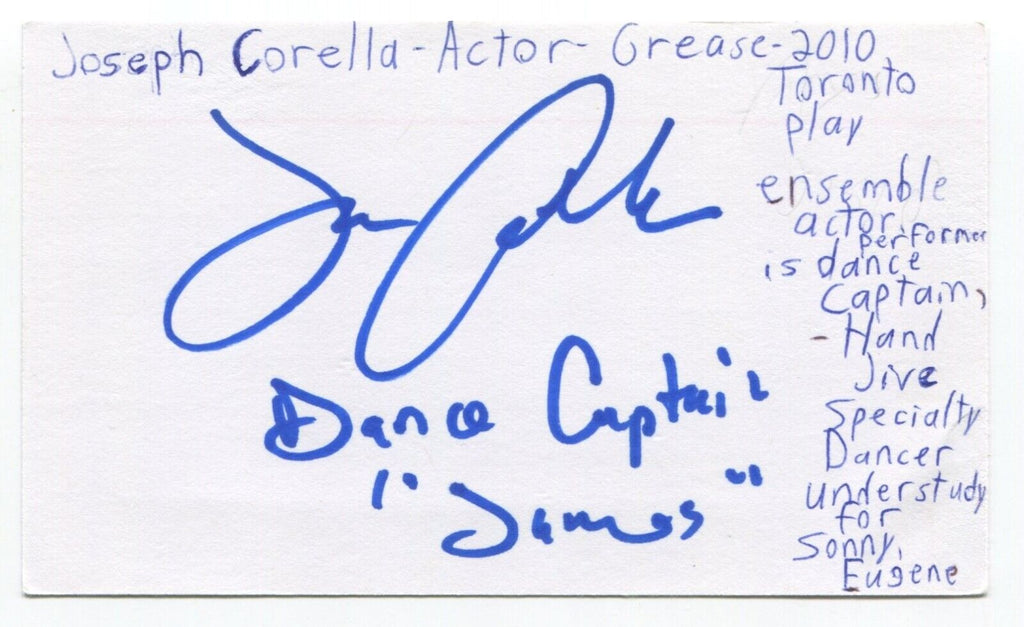 Joseph Corella-Actor-Grease-2010
Toronto
play
ensemble
actor,
performer
is dance
captain,
- Hand
Jive
Specialty
Dancer
understudy
for
Sonny,
Eugene
Dance Captain
"James"